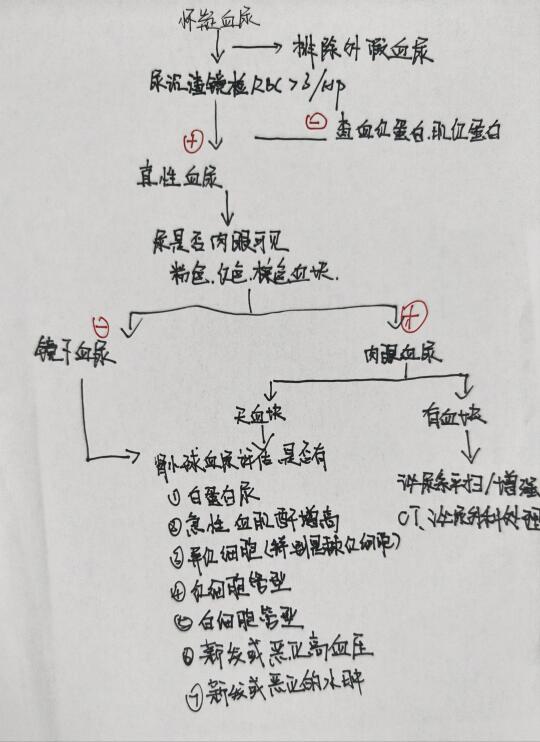 怀疑血尿
排除外假血尿
尿沉渣镜检RBC>3/HP
⊖
查血红蛋白.肌红蛋白
⊕
真性血尿
尿是否肉眼可见
粉色.红色.棕色血块.
⊖
⊕
镜下血尿
肉眼血尿
无血块
有血块
肾小球血尿评估,是否有
泌尿系平扫/增强
CT、泌尿外科处理
①白蛋白尿
②急性血肌酐增高
③异红细胞(特别是棘红细胞)
④红细胞管型
⑤白细胞管型
⑥新发或恶正高血压
⑦新发或恶正的水肿